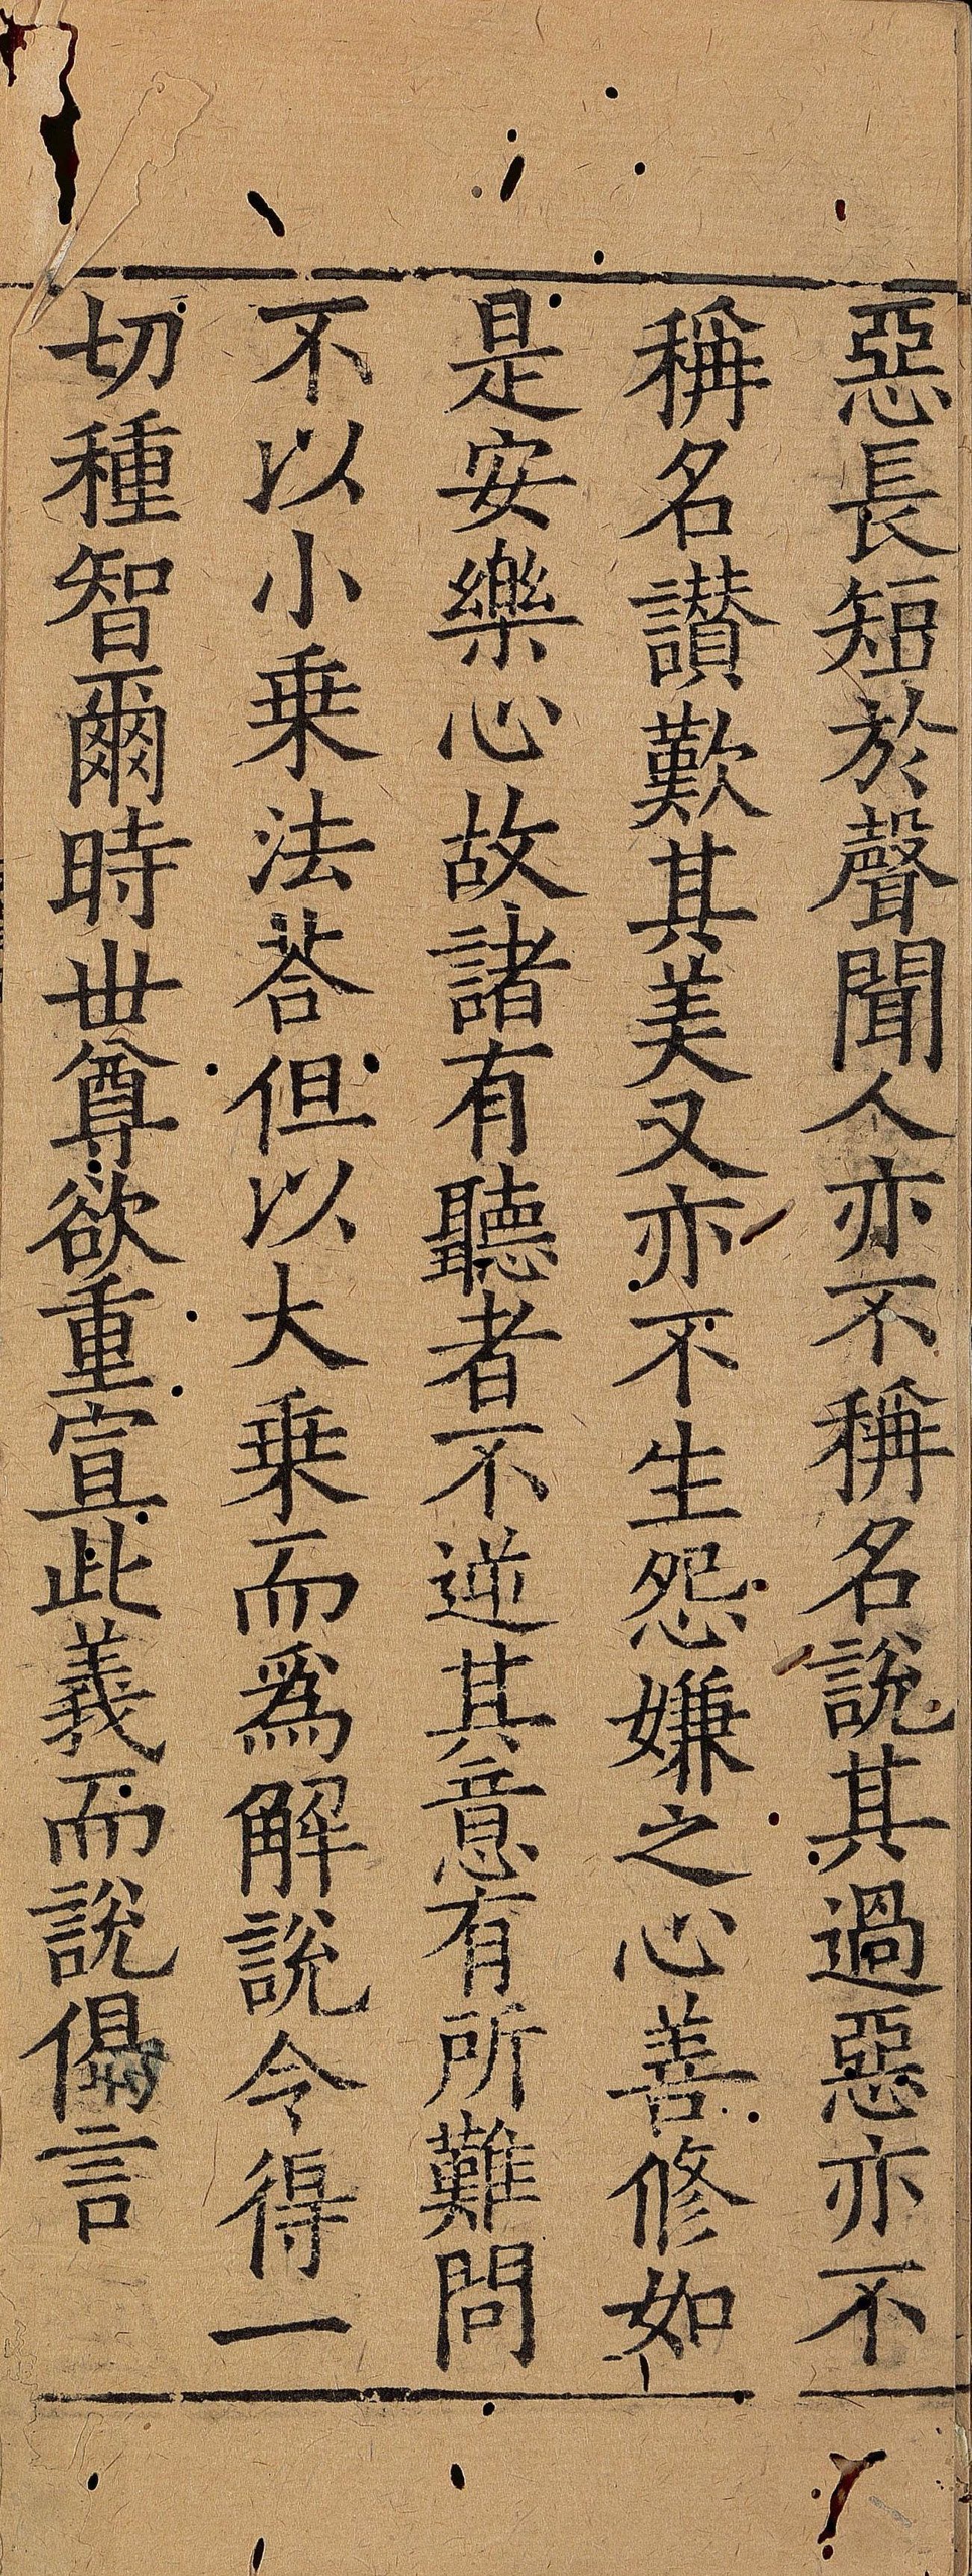 惡長短於聲聞人亦不稱名說其過惡亦不
稱名讃歎其美又亦不生怨嫌之心善修如
是安樂心故諸有聽者不逆其意有所難問
不以小乗法荅但以大乗而爲解說令得一
切種智爾時丗尊欲重宣此義而說偈言